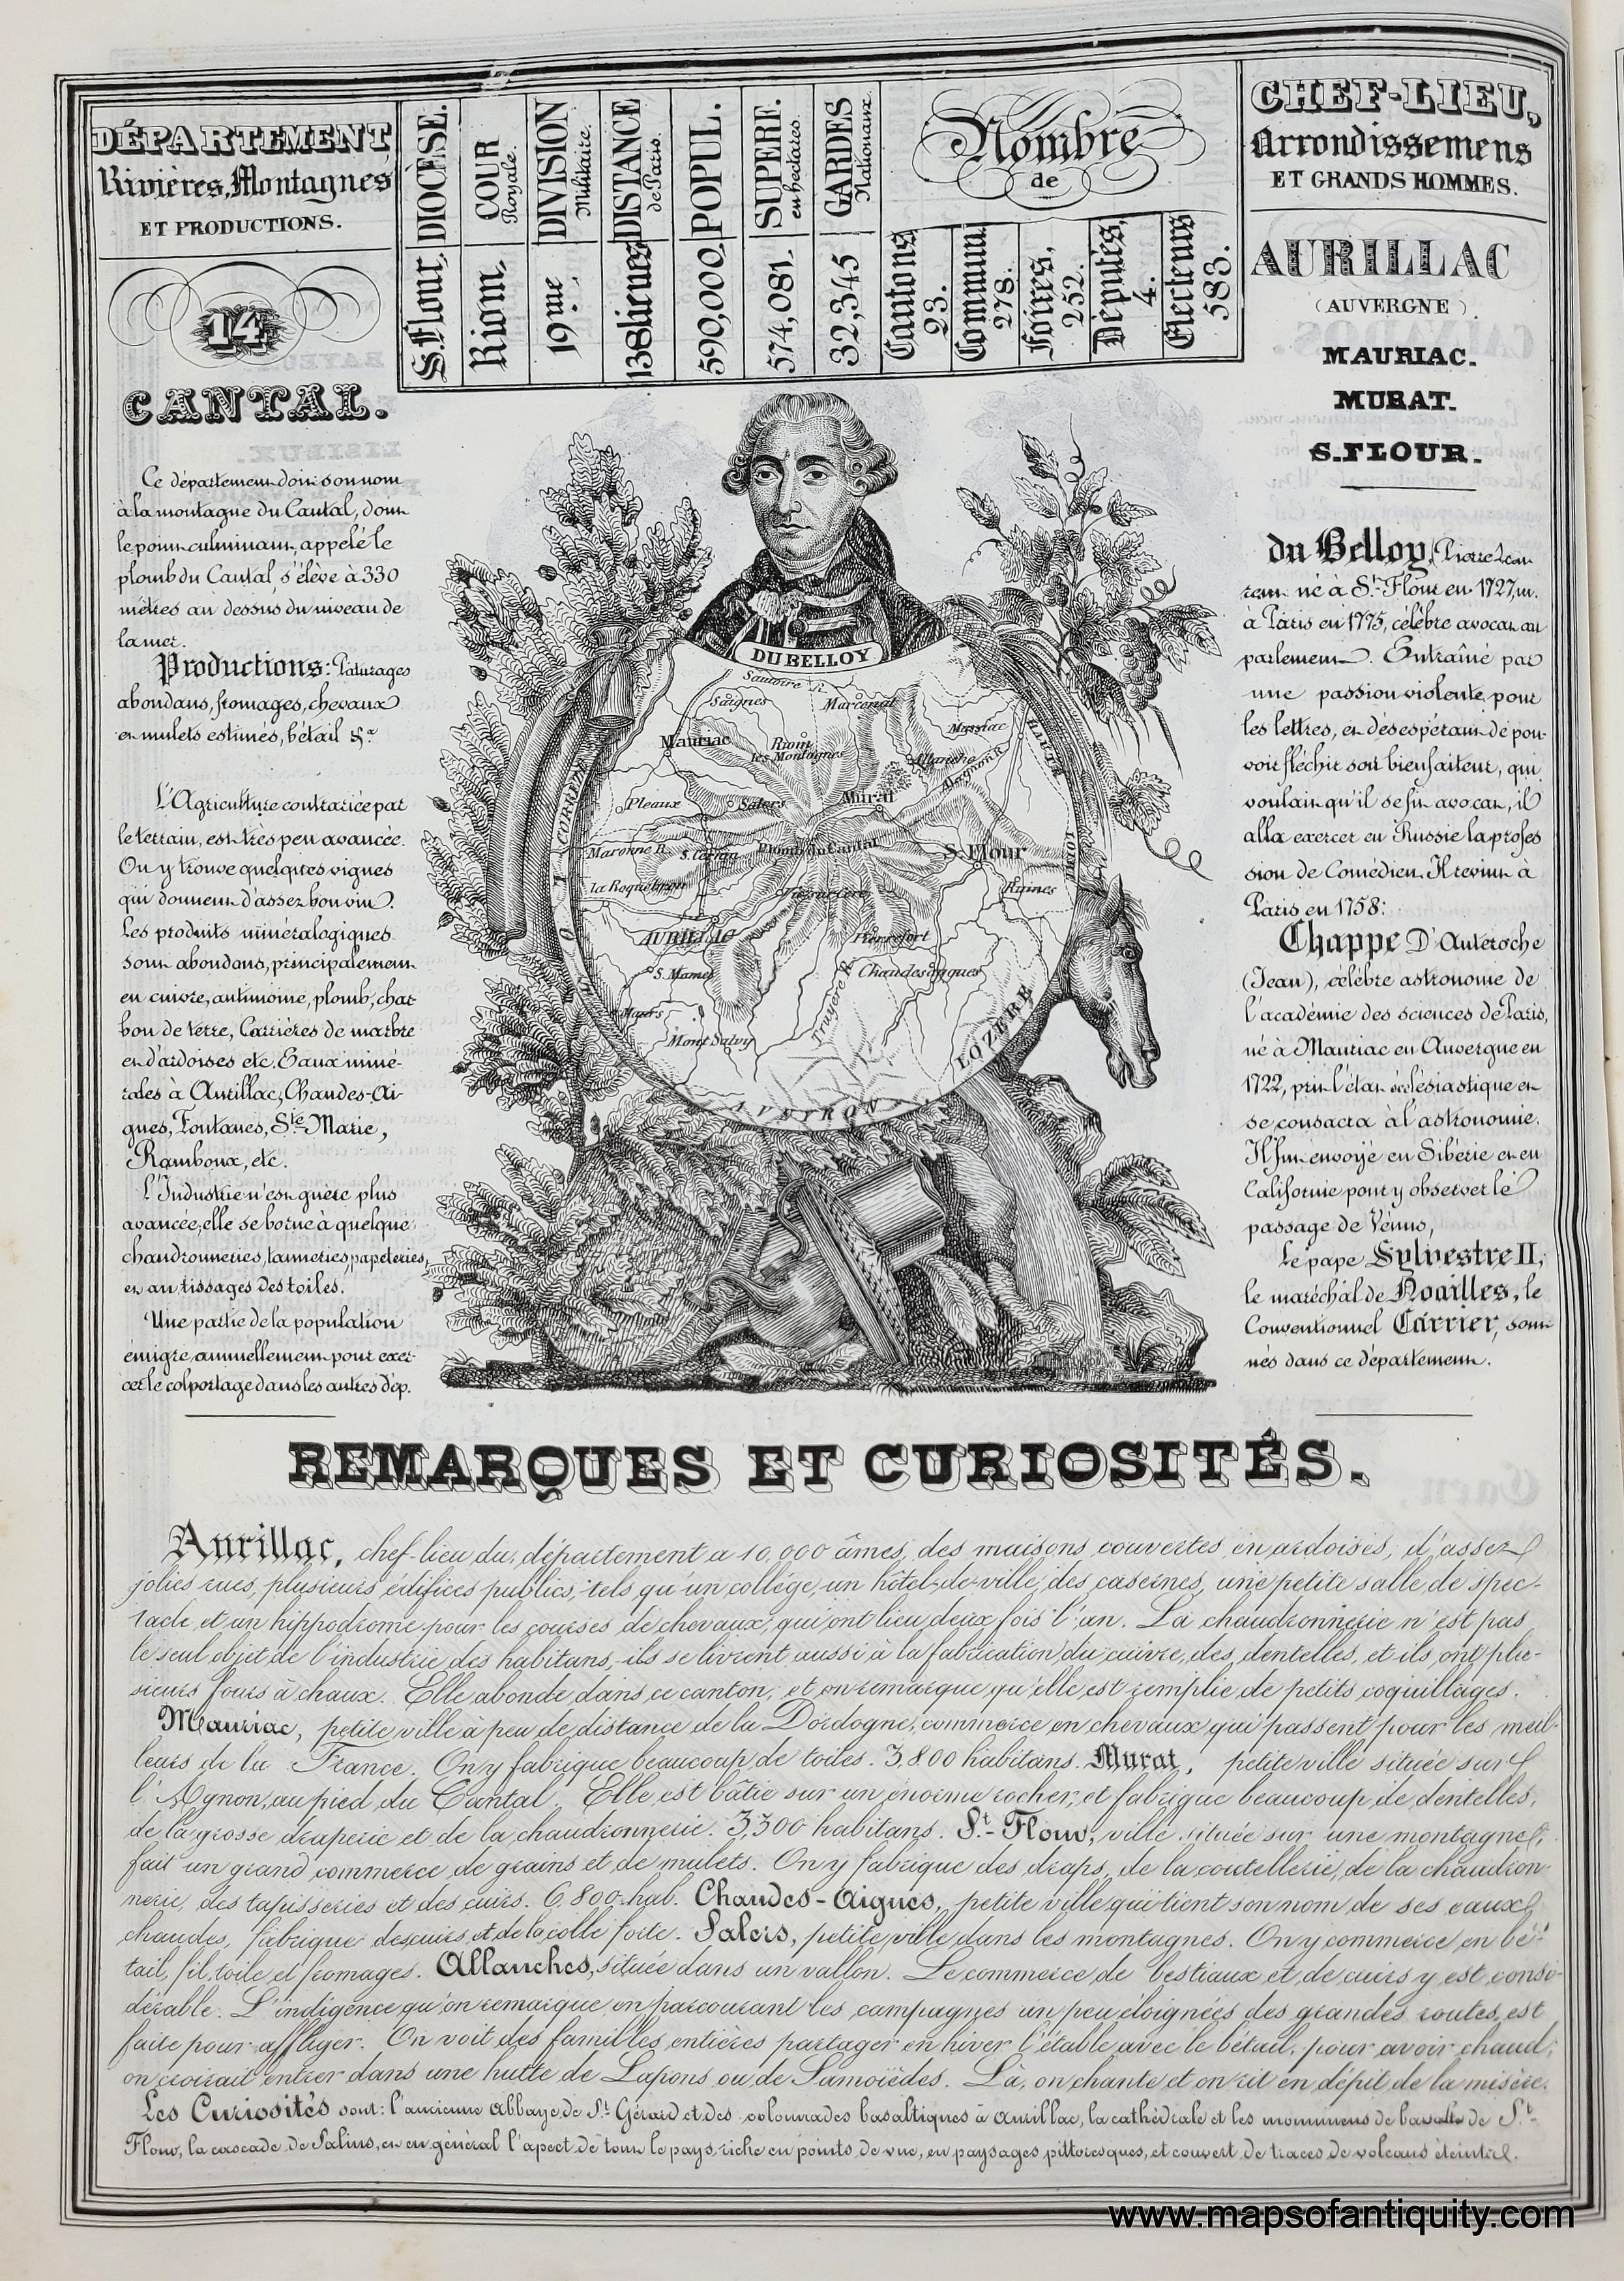 DÉPARTEMENT
Rivières, Montagnes
ET PRODUCTIONS.
DIOCÈSE.
S. Flour.
COUR
Royale.
Riom.
DIVISION
Militaire.
19me.
DISTANCE
de Paris.
138 lieues
POPUL.
590,000.
SUPERF.
en hectares.
574,081.
GARDES
Nationaux.
32,345
Nombre
de
Cantons
23.
Commun.
278.
Foires,
252.
Députés,
4.
Electeurs
583.
CHEF-LIEU,
Arrondissemens
ET GRANDS HOMMES.
14
CANTAL.
Ce département doit son nom
à la montagne du Cantal, dont
le point culminant, appelé le
plomb du Cantal, s'élève à 330
mètres au dessus du niveau de
la mer.
Productions: Paturages
abondans, fromages, chevaux
et mulets estimés, bétail &a
L'Agriculture contrariée par
le terrain, est très peu avancée.
On y trouve quelques vignes
qui donnent d'assez bon vin.
Les produits minéralogiques
sont abondans, principalement
en cuivre, antimoine, plomb, char
bon de terre, Carrières de marbre
et d'ardoises etc. Eaux miné-
rales à Aurillac, Chaudes-Ai-
gues, Fontanes, Ste Marie,
Ramboux, etc.
L'Industrie n'est guère plus
avancée, elle se borne à quelque
chaudronneries, tanneries, papeteries,
et au tissages des toiles.
Une partie de la population
émigre annuellement pour exer-
cer le colportage dans les autres dép.
DUBELLOY
Santoire R.
Saignes
Marcenat
Massiac
Mauriac
Riom
les Montagnes
Allanche
Alagnon R.
HAUTE
LOIRE
CORREZE
Pleaux
Salers
Murat
Maronne R.
S. Cernin
Plomb du Cantal
S. Flour
la Roquebrou
Vic sur Cère
Ruines
AURILLAC
Pierrefort
S. Mamet
Chaudesaigues
Maurs
Truyère R.
Mont Salvy
LOT
LOZERE
AVEYRON
AURILLAC
(AUVERGNE).
MAURIAC.
MURAT.
S. FLOUR.
du Belloy, Pierre Lau-
rent né à St. Flour en 1727, m.
à Paris en 1775, célèbre avocat au
parlement. Entraîné par
une passion violente pour
les lettres, et désespérant de pou-
voir fléchir son bienfaiteur, qui
voulait qu'il se fit avocat, il
alla exercer en Russie la profes
sion de Comédien. Il revint à
Paris en 1758:
Chappe D'Auteroche
(Jean), célèbre astronome de
l'académie des sciences de Paris,
né à Mauriac en Auvergne en
1722, prit l'état écclésiastique et
se consacra à l'astronomie.
Il fut envoyé en Sibérie et en
Californie pour y observer le
passage de Vénus,
Le pape Sylvestre II,
le maréchal de Noailles, le
Conventionnel Carrier, sont
nés dans ce département.
REMARQUES ET CURIOSITÉS.
Aurillac, chef-lieu du département a 10,000 âmes, des maisons couvertes en ardoises, d'assez
jolies rues, plusieurs édifices publics, tels qu'un collége, un hôtel-de-ville, des casernes, une petite salle de spec-
tacle et un hippodrome pour les courses de chevaux, qui ont lieu deux fois l'an. La chaudronnerie n'est pas
le seul objet de l'industrie des habitans, ils se livrent aussi à la fabrication du cuivre, des dentelles, et ils ont plu-
sieurs fours à chaux. Elle abonde dans ce canton, et on remarque qu'elle est remplie de petits coquillages.
Mauriac, petite ville à peu de distance de la Dordogne, commerce en chevaux qui passent pour les meil-
leurs de la France. On y fabrique beaucoup de toiles. 3,800 habitans. Murat, petite ville située sur
l'Agnon, au pied du Cantal. Elle est bâtie sur un énorme rocher, et fabrique beaucoup de dentelles,
de la grosse draperie et de la chaudronnerie. 3,300 habitans. St.-Flour, ville située sur une montagne,
fait un grand commerce de grains et de mulets. On y fabrique des draps, de la coutellerie, de la chaudron-
nerie, des tapisseries et des cuirs. 6,800 hab. Chaudes-Aigues, petite ville qui tient son nom de ses eaux
chaudes, fabrique des cuirs et de la colle forte. Salers, petite ville dans les montagnes. On y commerce en bé-
tail, fil, toile et fromages. Allanches, située dans un vallon. Le commerce de bestiaux et de cuirs y est consi-
dérable. L'indigence qu'on remarque en parcourant les campagnes un peu éloignées des grandes routes, est
faite pour affliger. On voit des familles entières partager en hiver l'étable avec le bétail, pour avoir chaud;
on croirait entrer dans une hutte de Lapons ou de Samoïèdes. Là, on chante et on rit en dépit de la misère.
Les Curiosités sont: l'ancienne Abbaye de St. Gérard et des colonnades basaltiques à Aurillac, la cathédrale et les monumens de basalte de St-
Flour, la cascade de Salins, et en général l'apect de tout le pays, riche en points de vue, en paysages pittoresques, et couvert de traces de volcans éteints.
www.mapsofantiquity.com